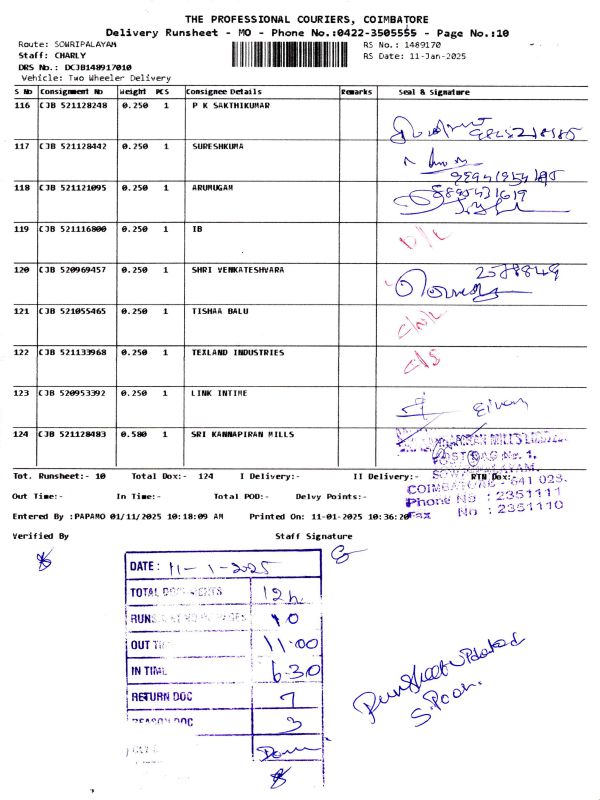 THE PROFESSIONAL COURIERS, COIMBATORE
Delivery Runsheet - MO - Phone No.:0422-3505555 - Page No.:10
Route: SOWRIPALAYAM
RS No.: 1489170
Staff: CHARLY
RS Date: 11-Jan-2025
DRS No.: DCJB148917010
Vehicle: Two Wheeler Delivery
S No Consignment No Weight PCS Consignee Details Remarks Seal & Signature
116 CJB 521128248 0.250 1 P K SAKTHIKUMAR
117 CJB 521128442 0.250 1 SURESHKUMA
118 CJB 521121095 0.250 1 ARUMUGAM
8895431619
119 CJB 521116800 0.250 1 IB
D/L
120 CJB 520969457 0.250 1 SHRI VENKATESHVARA
2578849
121 CJB 521055465 0.250 1 TISHAA BALU
122 CJB 521133968 0.250 1 TEXLAND INDUSTRIES
C/S
123 CJB 520953392 0.250 1 LINK INTIME
124 CJB 521128483 0.580 1 SRI KANNAPIRAN MILLS
POST BAG No. 1,
SOWRIPALAYAM,
COIMBATORE - 641 028.
Phone No : 2351111
Fax No : 2351110
Tot. Runsheet:- 10 Total Dox:- 124 I Delivery:- II Delivery:- RTN Dox:-
Out Time:- In Time:- Total POD:- Delvy Points:-
Entered By :PAPAMO 01/11/2025 10:18:09 AM Printed On: 11-01-2025 10:36:20
Verified By Staff Signature
DATE : 11-1-2025
TOTAL DOCUMENTS 124
10
OUT TIME 11.00
IN TIME 6.30
RETURN DOC 7
REASON DOC 3
Runsheet updated